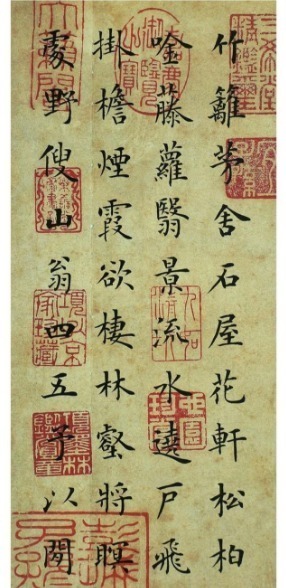 竹籬茅舍石屋花軒松柏
唫藤蘿翳景流水遶戶飛
掛檐煙霞欲棲林壑將瞑
處野傁山翁四五予以閒